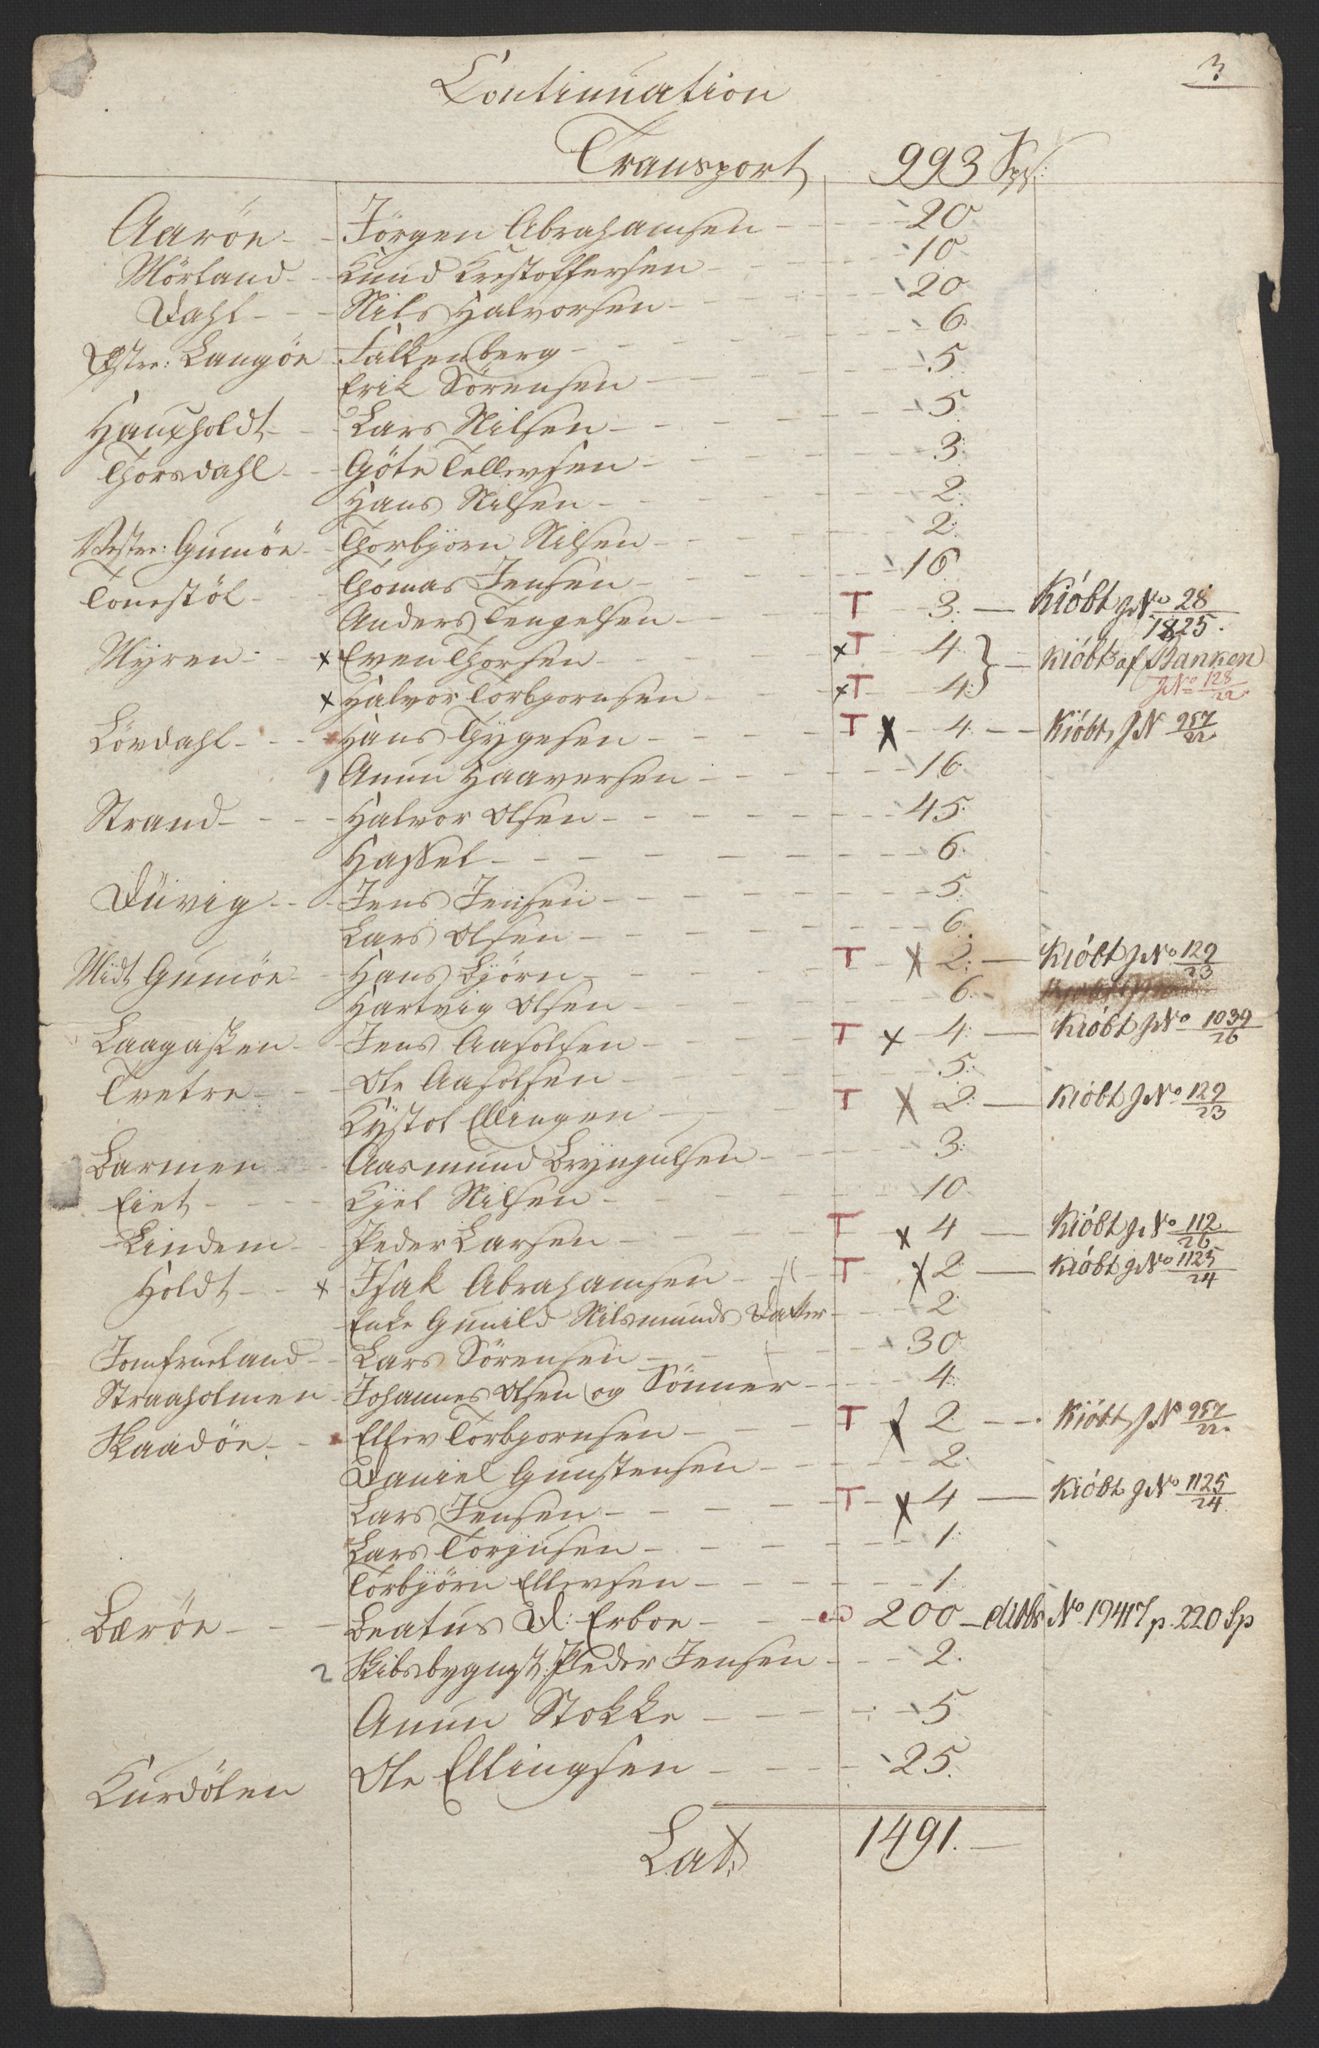 3
Continuation
Transport 993 Sps:
Aaröe - Jörgen Abrahamsen - 20
Mörland - Knud Krestoffersen - 10
Dahl - Nils Halvorsen - 20
Östre: Langöe Falkenberg - 6
Erik Sörensen - 5
Haugholdt - Lars Nilsen - 5
Thorsdahl - Göte Tellevsen - 3
Hans Nilsen - 2
Vestre: Gumöe - Thorbjörn Nilsen - 2
Tonestöl - Thomas Jensen - 16
Anders Tengelsen - T 3. - Kiöbt JNo 28/1825.
Myren - x Even Thorsen - xT 4 } - Kiöbt af Banken
x Halvor Torbjornsen - xT 4 JNo 128/22
Lövdahl - Hans Thygesen - T x 4 - Kiöbt JN 957/22
1 Anun Haaversen - 16
Strand - Halvor Olsen - 45
Hassel - 6
Düvig - Jens Jensen - 5
Lars Olsen - 6
Midt Gumöe - Hans Björn - T x 2 - Kiöbt JNo 129/23
Hartvig Olsen - 6
Laagasken - Jens Aasolsen - T x 4 - Kiöbt JNo 1039/26
Tvetre - Ole Aasolsen - 5
Kystol Ellingen - T x 2 - Kiöbt JNo 129/23
Barmen - Aasmund Bryngulsen - 3
Eiet - Kjel Nilsen - 10
Lindem - Peder Larsen - T x 4 - Kiöbt JNo 112/26
Holdt - x Isak Abrahamsen - T x 2 - Kiöbt JNo 1125/24
Enke Gunild Nilsmunds Datter - 2
Jomfrueland - Lars Sörensen - 30
Straaholmen - Johannes Olsen og Sönner - 4
Skaadöe - Ellev Torbjornsen - T x 2 - Kiöbt JN 957/22
Daniel Gunstensen - 2
Lars Jensen - T x 4 - Kiöbt JNo 1125/24
Lars Torjusen - 1
Torbjörn Ellevsen - 1
Bæröe - Beatus D: Erboe - 200 - No 19417 p. 220 Sp
2 Skibsbygngst. Peder Jensen - 2.
Anun Stokke - 5
Kurdölen Ole Ellingsen - 25.
Lat. 1491. -